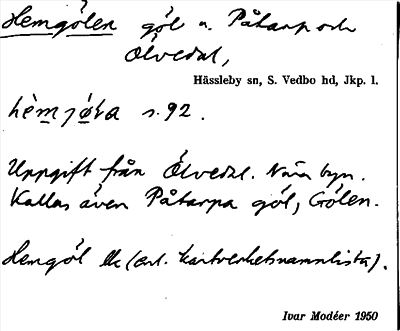 Hemgölen göl n. Påtarp och
Ölvedal,
Hässleby sn, S. Vedbo hd, Jkp. l.
s. 92.
Uppgift från Ölvedal. Nära byn.
Kallas även Påtarpa göl, Gölen.
Hemgöl (enl. kartverkets namnlista).
Ivar Modéer 1950